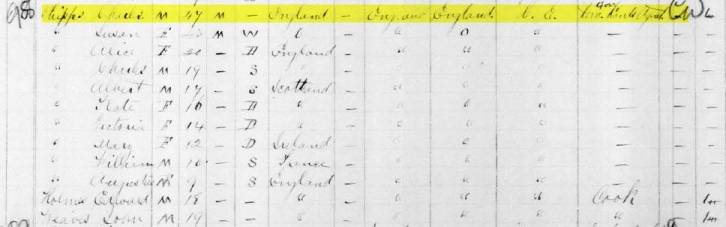 Phipps Charles M 47 M - England - England England C. E.
" Susan F M W " - " " "
" Alice F 20 - D England - " " "
" Charles M 19 - S " - " " "
" Albert M 17 - S Scotland - " " " - -
" Kate F 16 - D " - " " " - -
" Victoria F 14 - D " - " " " - -
" May F 12 - D Ireland - " " " - -
" William M 10 - S France - " " " - -
" Augustus M 9 - S England - " " " - -
Holmes Edward M 18 - - " - " " " Cook -
Weaver John M 19 - - " - " " " " -